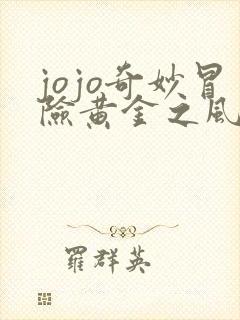 jojo奇妙冒
險黄金之風
羅群英